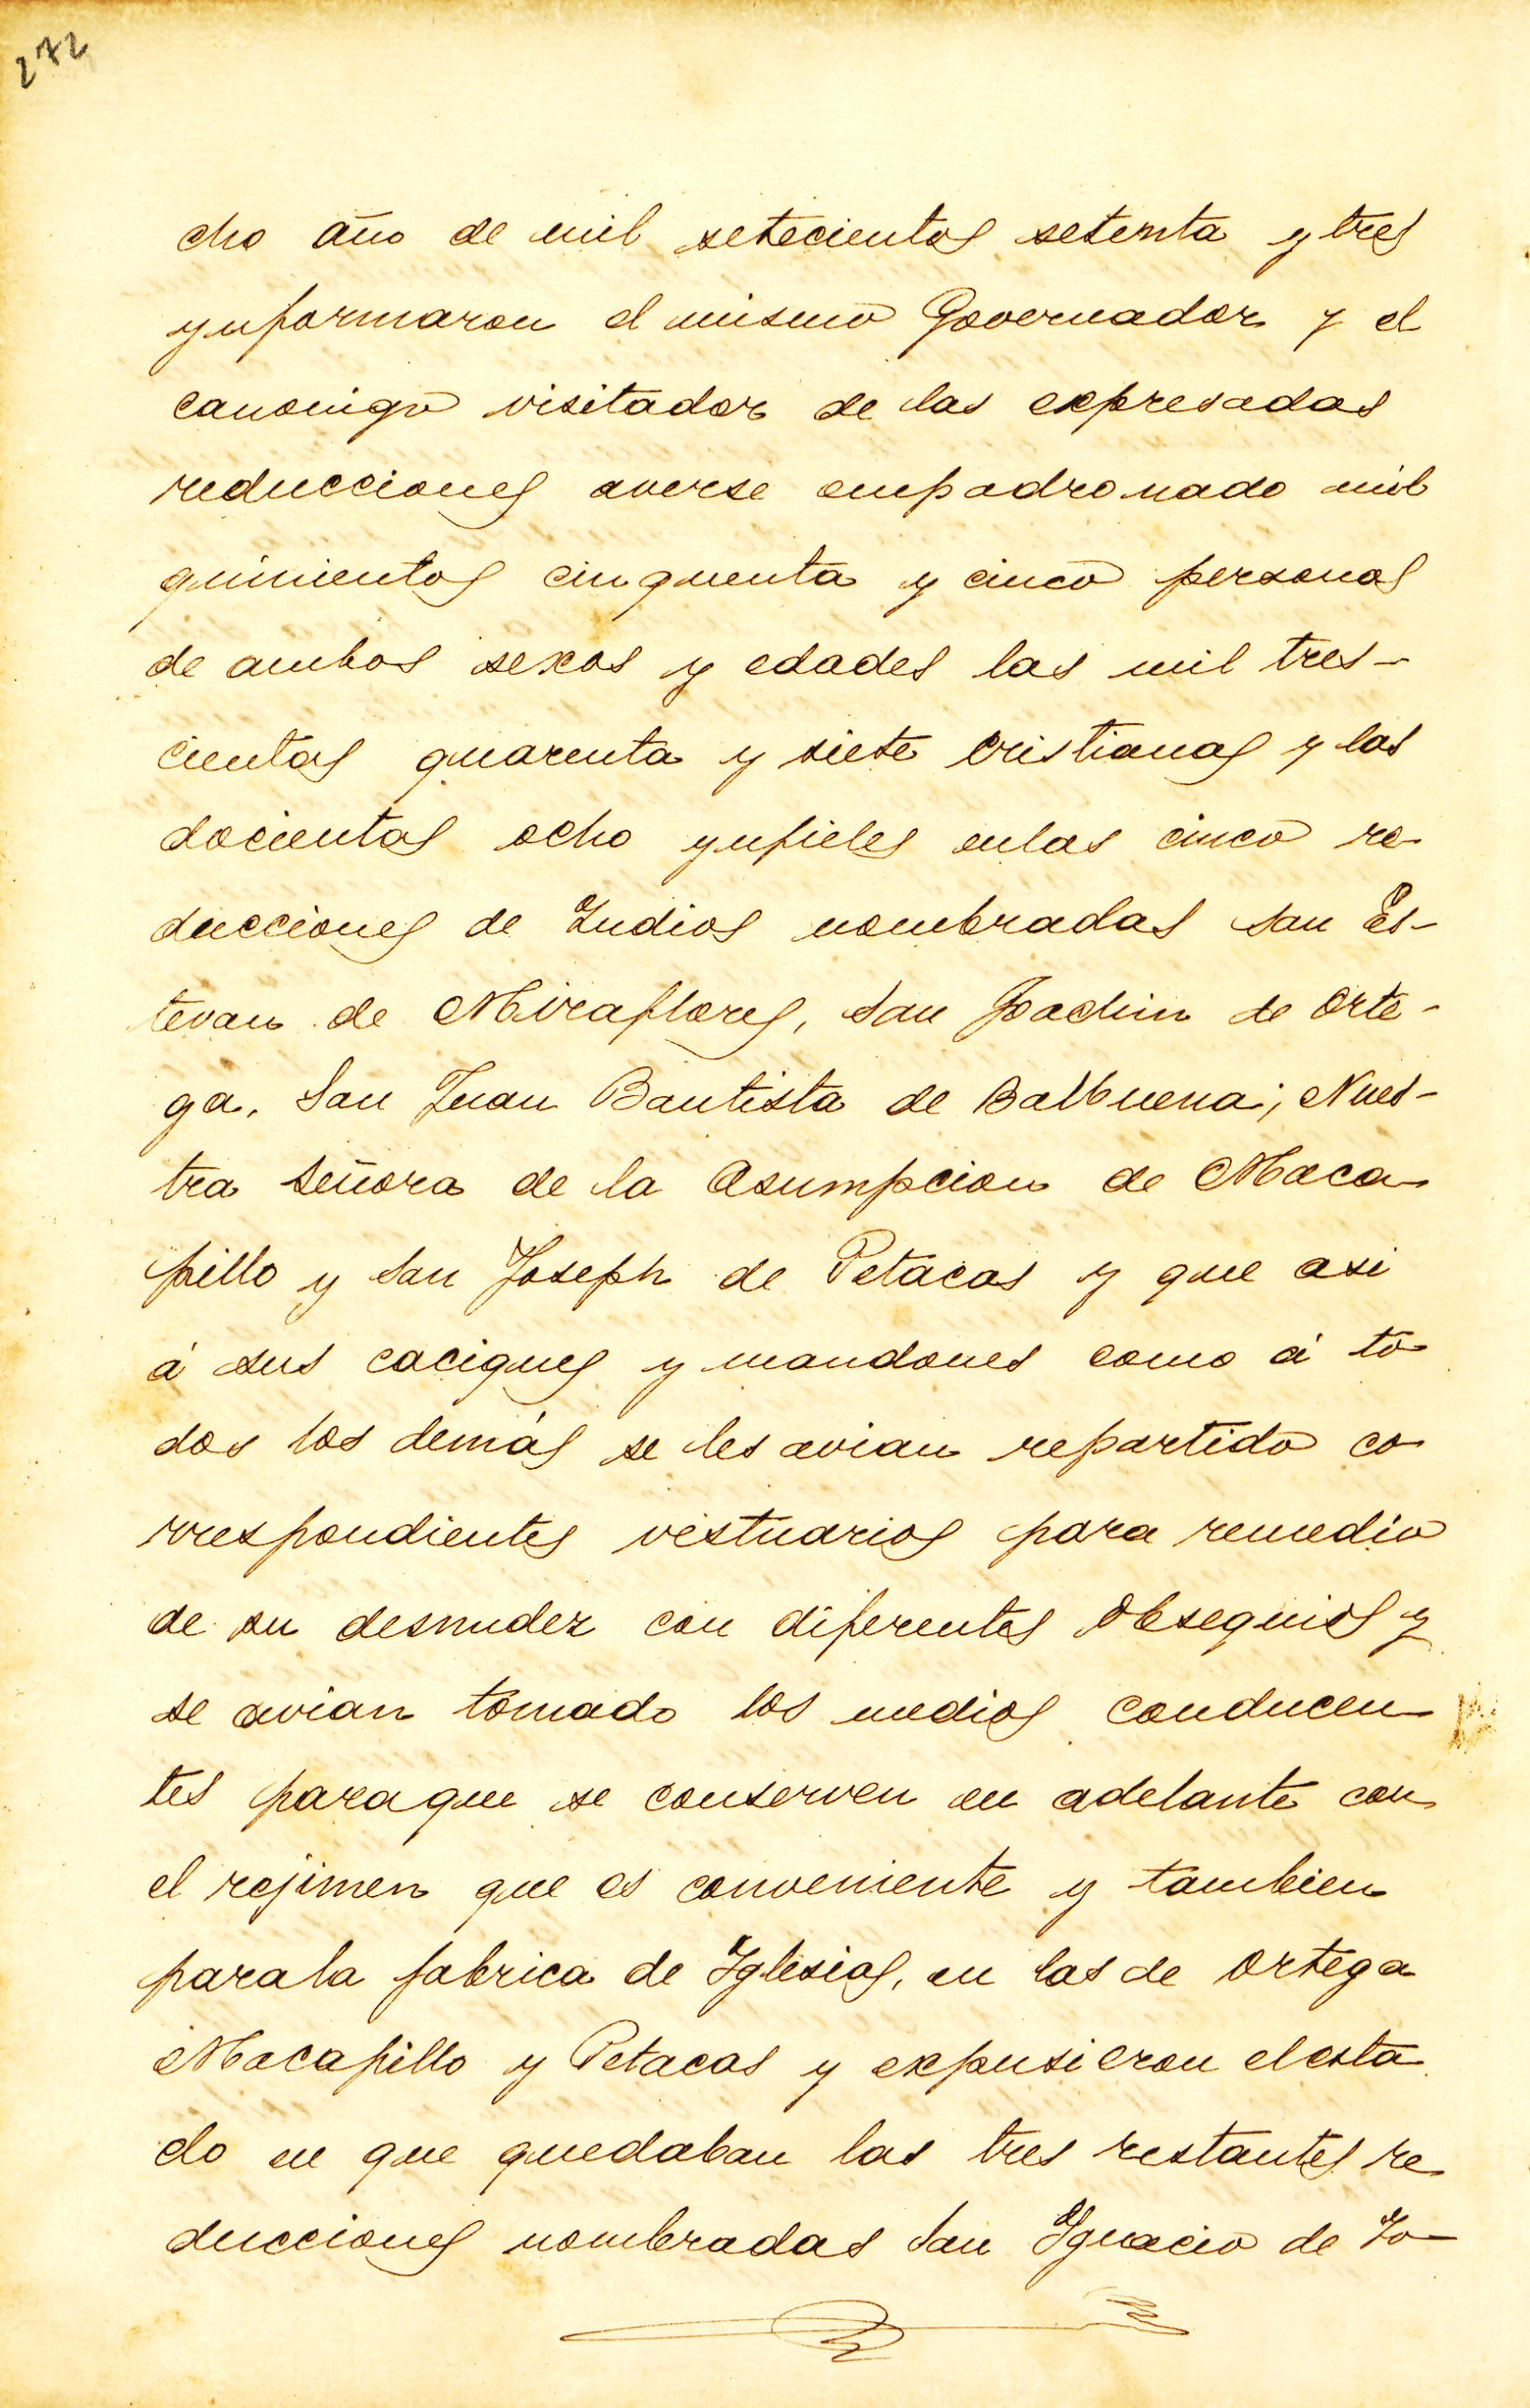 272
cho año de mil setecientos setenta y tres
ynformaron el mismo Governador y el
canonigo visitador de las expresadas
reducciones averse empadronado mil
quinientos cinquenta y cinco personas
de ambos sexos y edades las mil tres-
cientas quarenta y siete cristianas y las
docientas ocho ynfieles enlas cinco re-
ducciones de Indios nombradas San Es-
tevan de Miraflores, San Joachin de Orte-
ga, San Juan Bautista de Balbuena; Nues-
tra Señora de la Asumpcion de Maca-
pillo y San Joseph de Petacas y que asi
á sus caciques y mandones como á to-
dos los demás se les avian repartido co-
rrespondientes vestuarios para remedio
de su desnudez con diferentes Obsequios y
se avian tomado los medios conducen-
tes paraque se conserven en adelante con
el rejimen que es conveniente y tambien
parala fabrica de Iglesias, en las de Ortega
Macapillo y Petacas y expusieron elesta-
do en que quedaban las tres restantes re-
ducciones nombradas San Ygnacio de To-